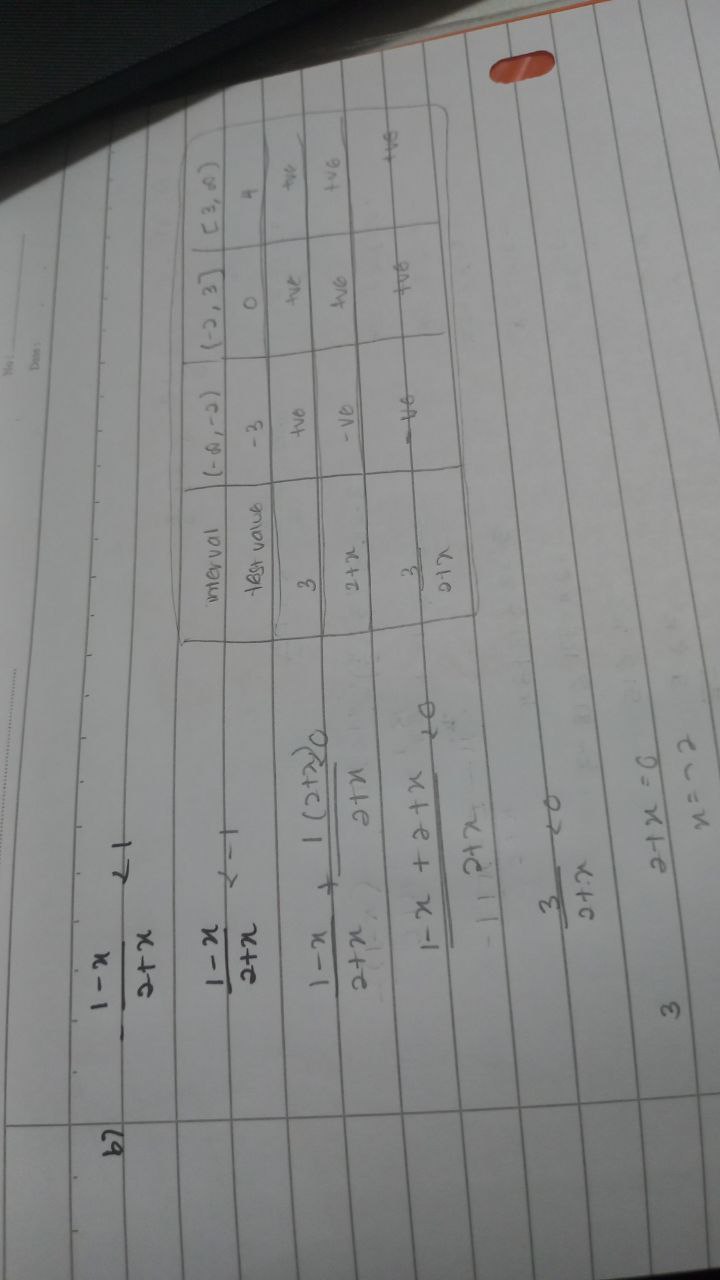 No:
Date:
b) 1-x / 2+x < 1
1-x / 2+x < -1
1-x / 2+x + 1(2+x) / 2+x < 0
1-x+2+x / 2+x < 0
3 / 2+x < 0
3 2+x=0
x=-2
interval (-∞,-2) (-2,3] [3,∞)
test value -3 0 4
3 +ve +ve +ve
2+x -ve +ve +ve
3 / 2+x -ve +ve +ve